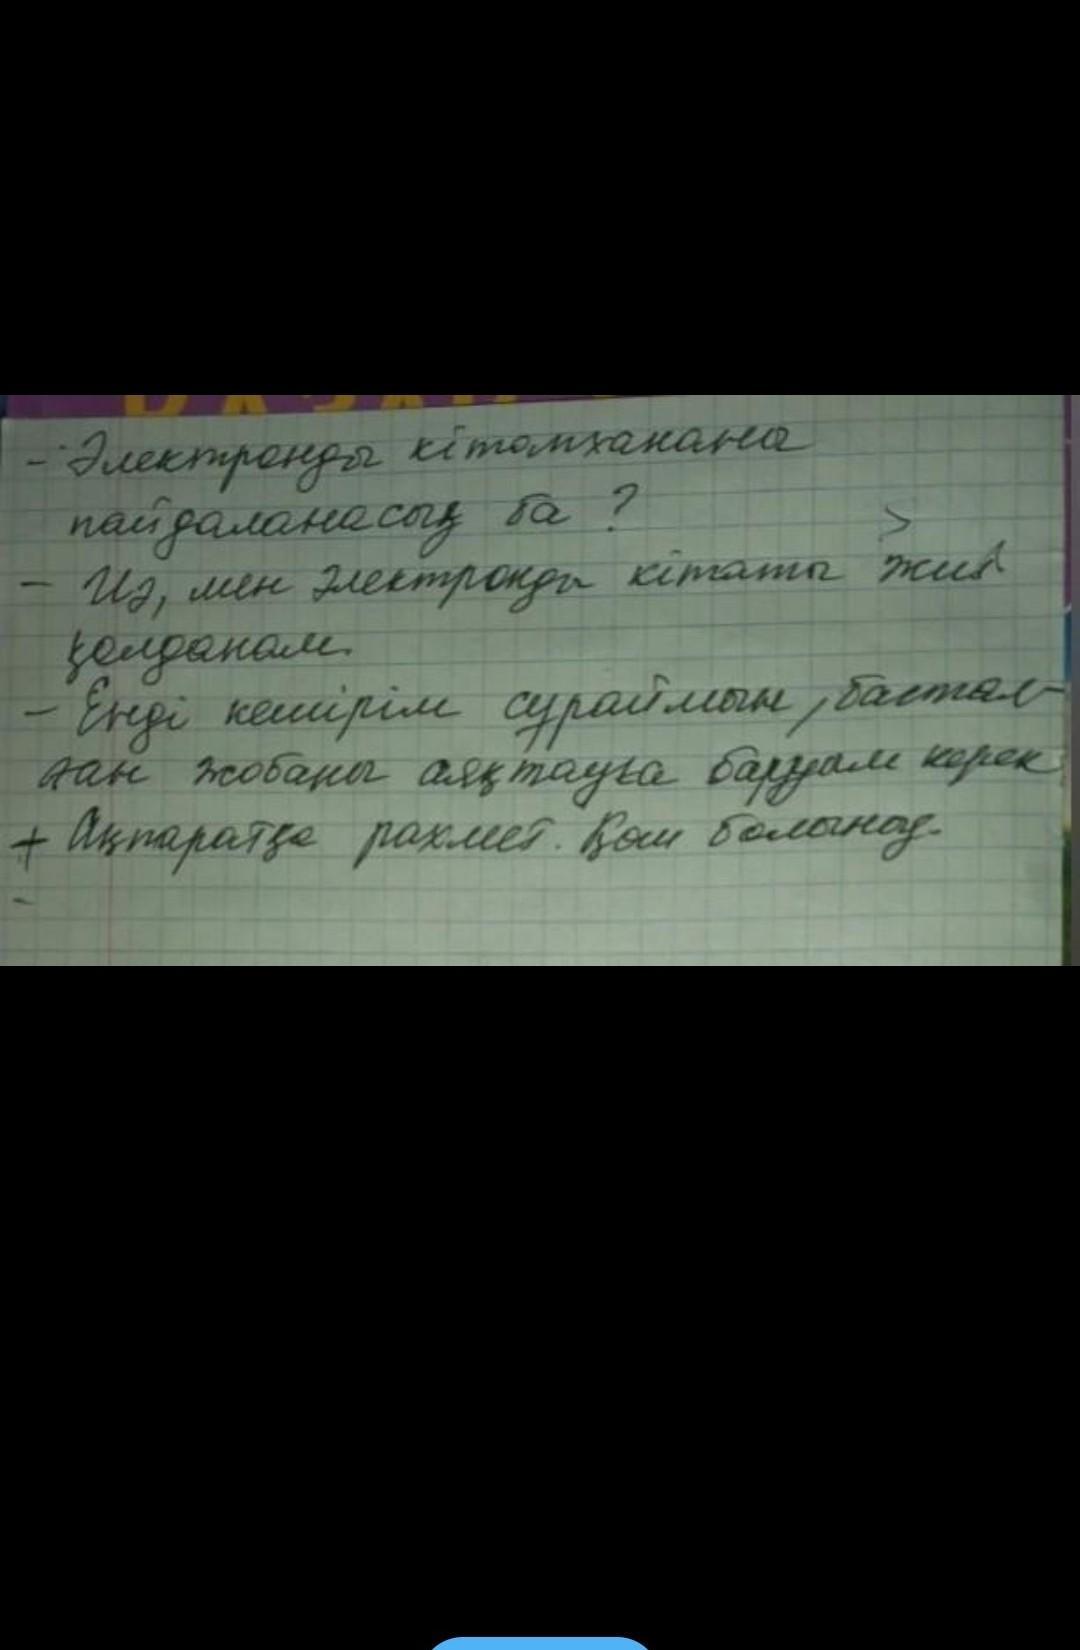 - Электронды кітапханана
пайдаланасың ба ?
- Иә, мен электронды кітапты жиі
қолданам.
- Енді кешірім сұраймын, бастал-
ған жобаны аяқтауға баруам керек
+ Ақпаратқа рахмет. Қош болыңыз.
-